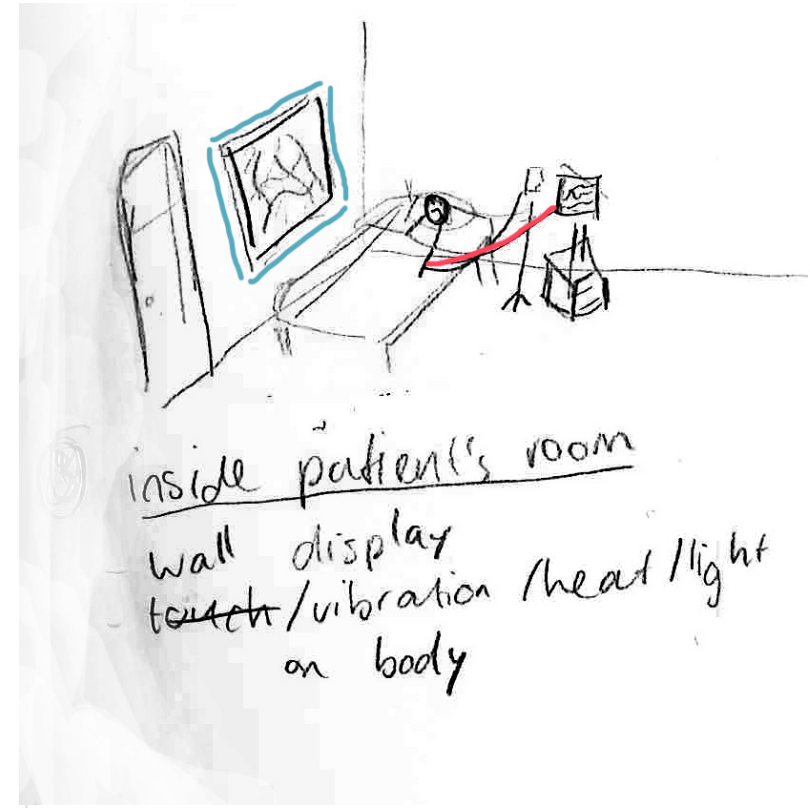 inside patient's room
- wall display
- touch/vibration/heat/light
on body